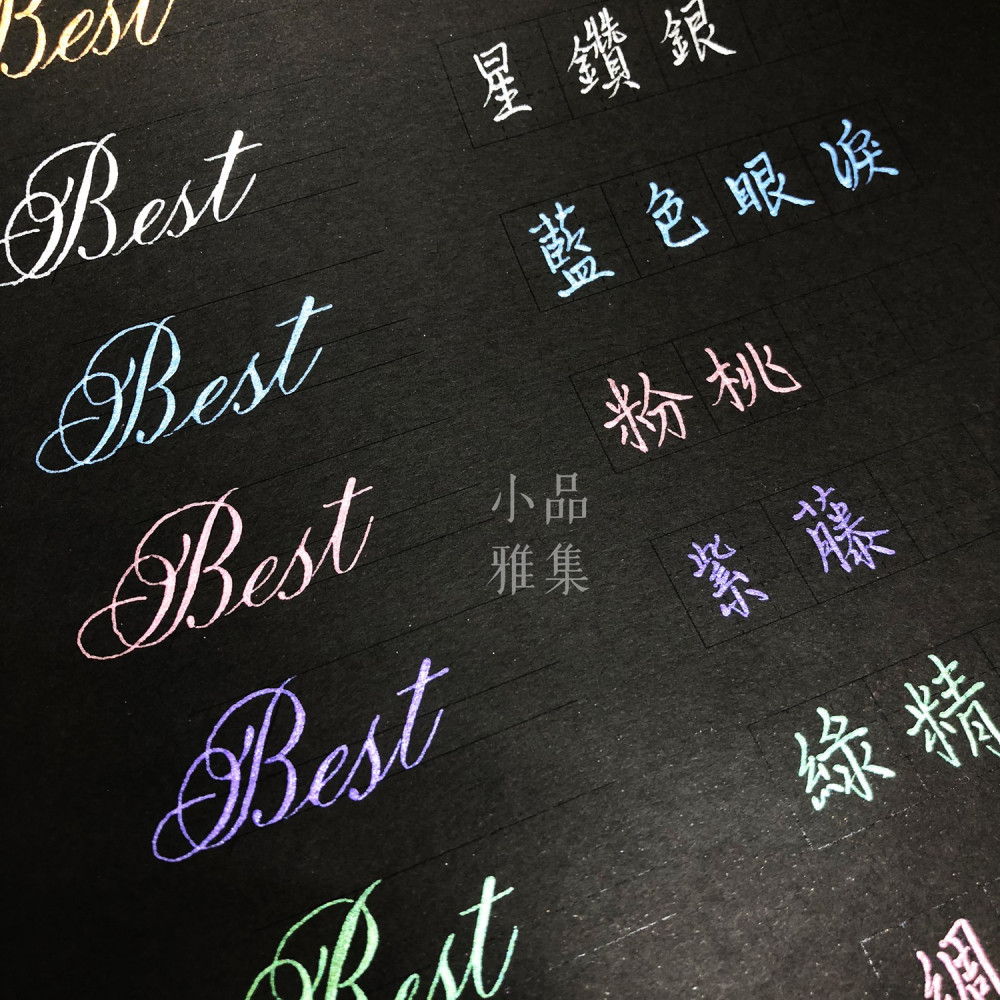 Best
Best 星鑽銀
Best 藍色眼淚
Best 粉桃
小品
雅集
Best 紫藤
Best 綠精
綢